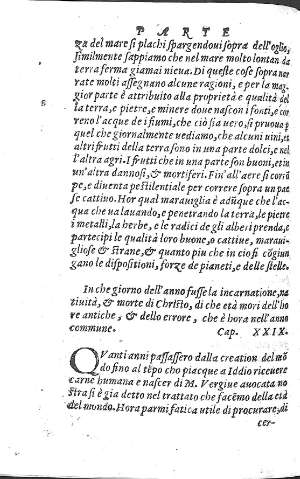 PARTE
za del mare si plachi spargendoui sopra dell'oglio,
similmente sappiamo che nel mare molto lontan da
terra ferma giamai nieua. Di queste cose sopra nar
rate molti assegnano alcune ragioni, e per la mag
gior parte è attribuito alla proprietà e qualità del
la terra, e pietre, e minere doue nascon i fonti, e cor
reno l'acque de i fiumi, che ciò sia uero, si pruoua per
quel che giornalmente uediamo, che alcuni uini, et
altri frutti della terra sono in una parte dolci, e nel
l'altra agri. I frutti che in una parte son buoni, et in
un'altra dannosi, & mortiferi. Fin'all'aere si corrū
pe, e diuenta pestilentiale per correre sopra un pae
se cattiuo. Hor qual marauiglia è adūque che l'ac-
qua che ua lauando, e penetrando la terra, le pietre
i metalli, la herbe, e le radici de gli alberi prenda, e
partecipi le qualità loro buone, o cattiue, maraui-
gliose & strane, & quanto piu che in cio si cōgiun
gano le dispositioni, forze de pianeti, e delle stelle.
In che giorno dell'anno fusse la incarnatione, na
tiuità, & morte di Christo, di che età mori dell'ho
re antiche, & dello errore, che è hora nell'anno
commune. Cap. XXIX.
QVanti anni passassero dalla creation del mō
do fino al tēpo cho piacque a Iddio riceuere
carne humana e nascer di M. Vergine auocata no
stra si è gia detto nel trattato che facēmo della età
del mondo. Hora parmi fatica utile di procurare, di
cer-